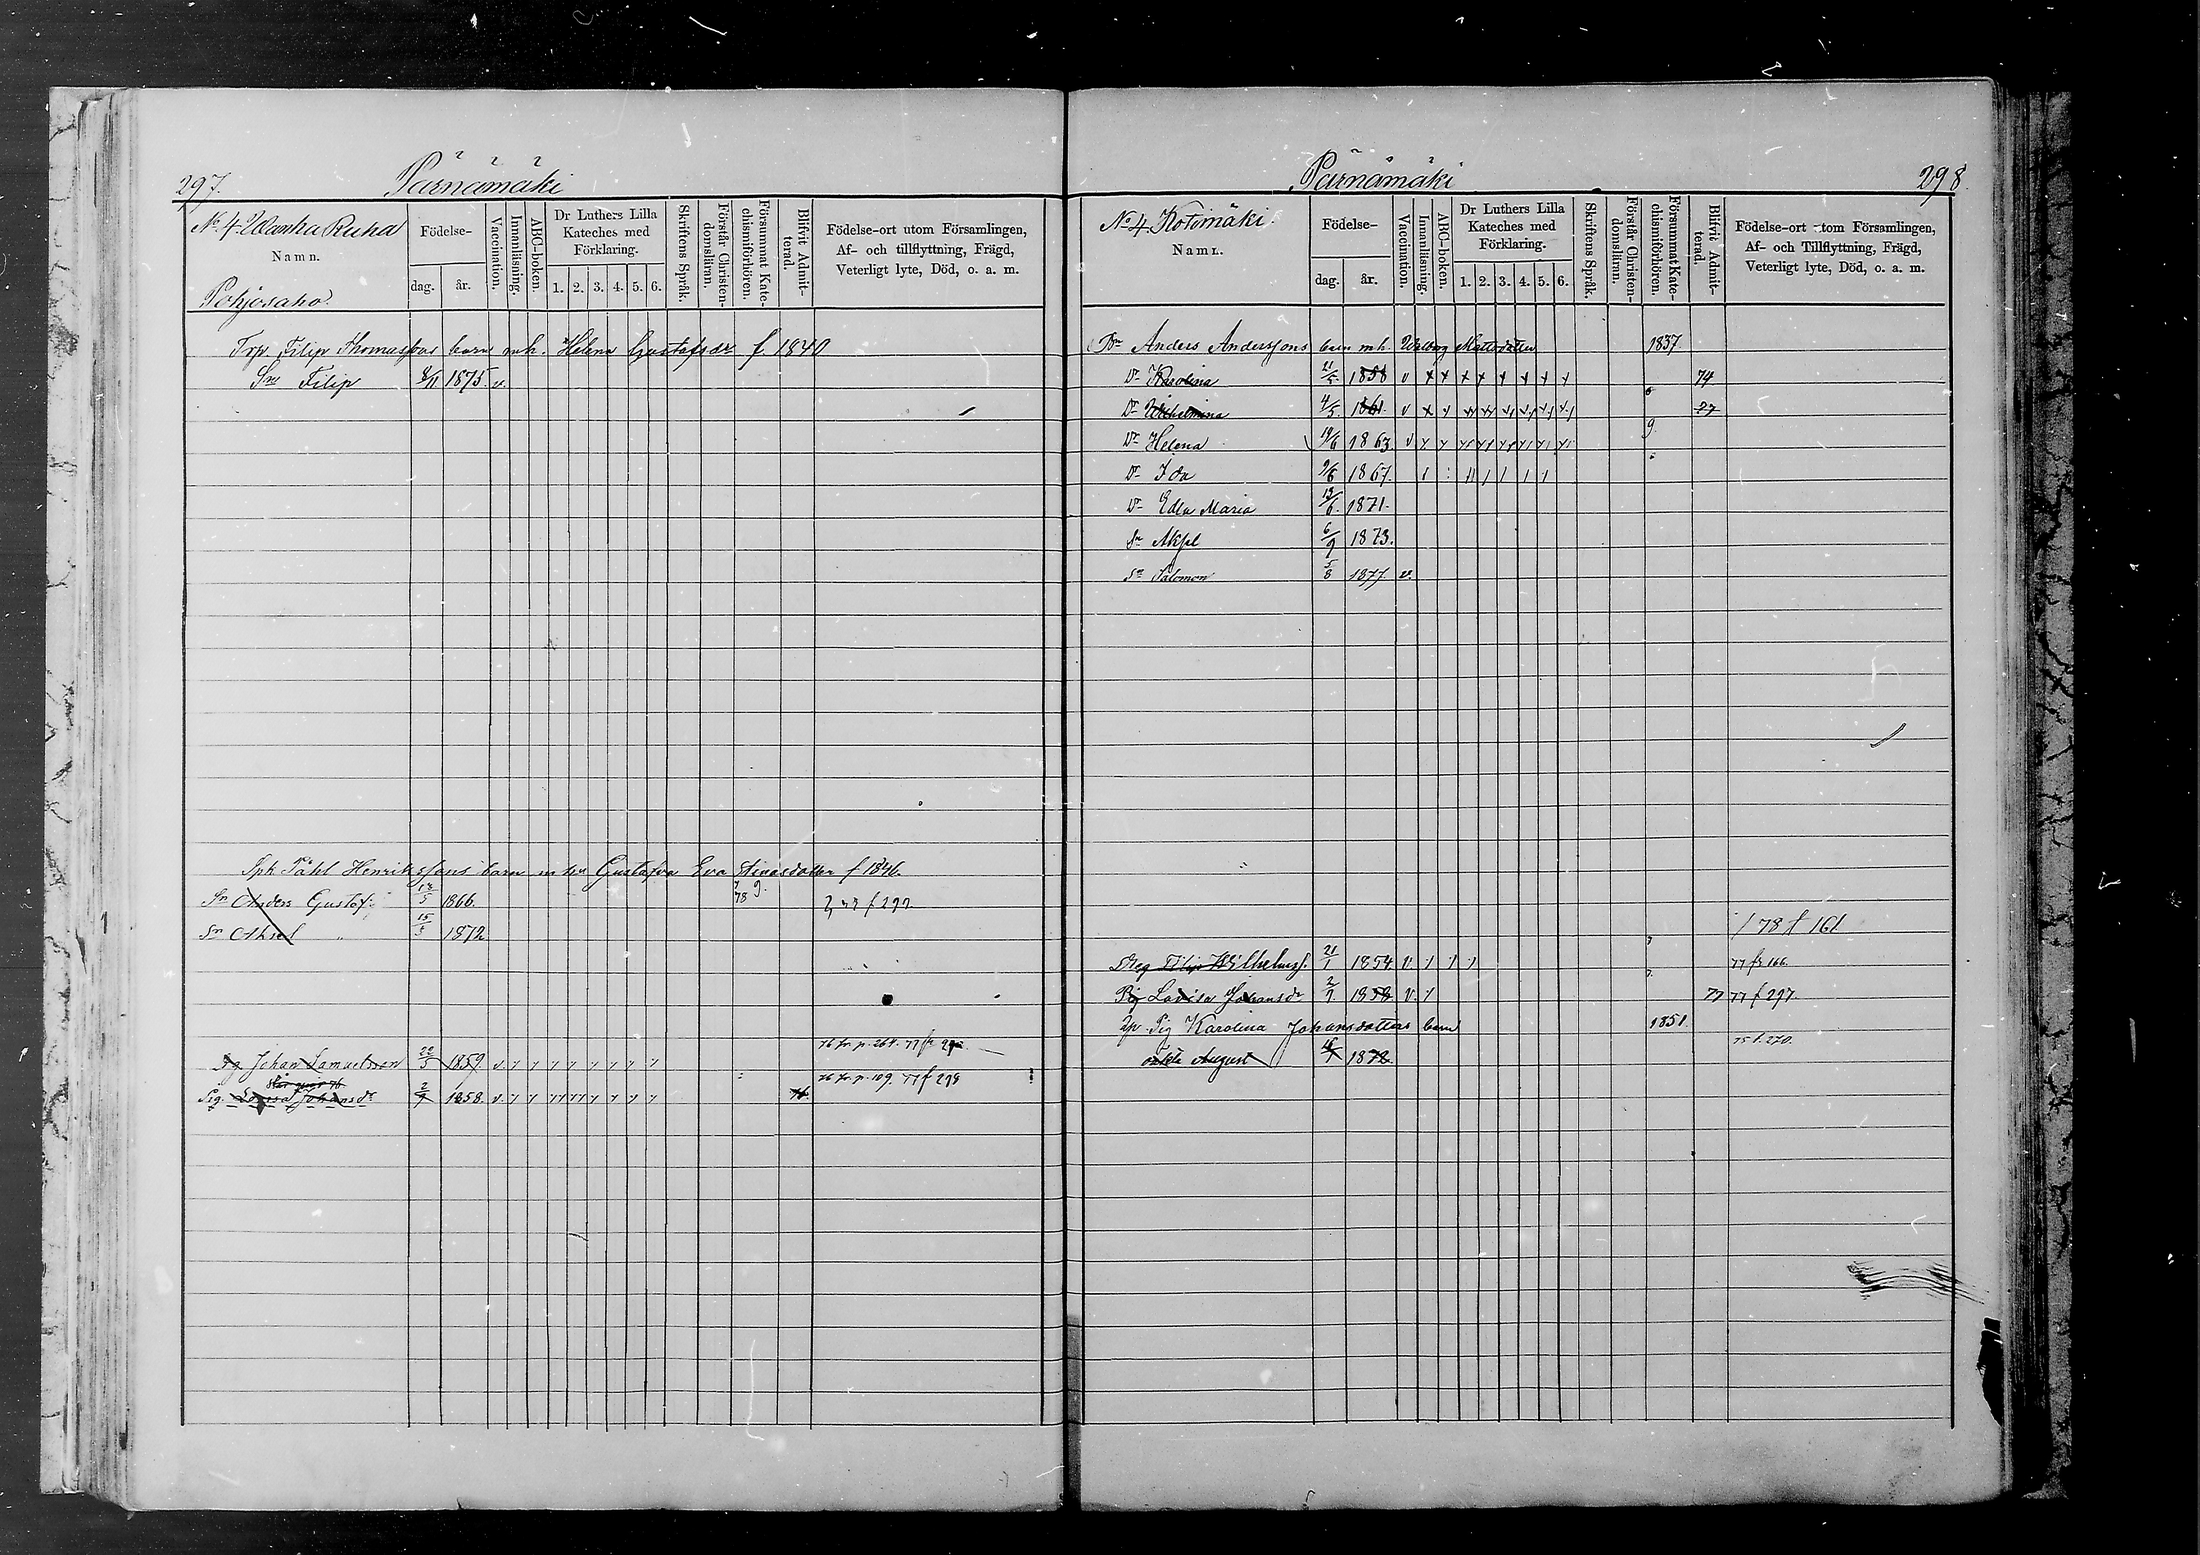 297. Pärnämäki
No 4 Wanha Ruha
Namn.
Pohjosaho.
Födelse-
dag. år.
Vaccination.
Innanläsning.
ABC-boken.
Dr Luthers Lilla Kateches med Förklaring.
1. 2. 3. 4. 5. 6.
Skriftens Språk.
Förstår Christendomsläran.
Försummat Katechismiförhören.
Blifvit Admitterad.
Födelse-ort utom Församlingen,
Af- och tillflyttning, Frägd,
Veterligt lyte, Död, o. a. m.
Trp. Filip Thomassons barn m.h. Helena Gustafsdr f. 1840
Sn Filip 8/11 1875 v.
Spk Påhl Henrikssons barn m hu Gustafva Eva Stinasdotter f 1846.
Sn Anders Gustof 5 1866. 78 9. f 297
Sn Aksel 15/5 1872
76 fr. p. 264. 77 fr
Dg Johan Samuelsson 22/5 1859. v. y y y y y y y y
76 fr. p. 109. 77 f 298
Pig. Lovisa Johansdr 2/9 1858. v. y y yy yy y y y y 76.
Pärnämäki 298.
No 4 Kotomäki
Namn.
Födelse-
dag. år.
Vaccination.
Innanläsning.
ABC-boken.
Dr Luthers Lilla Kateches med Förklaring.
1. 2. 3. 4. 5. 6.
Skriftens Språk.
Förstår Christendomsläran.
Försummat Katechismiförhören.
Blifvit Admitterad.
Födelse-ort utom Församlingen,
Af- och Tillflyttning, Frägd,
Veterligt lyte, Död, o. a. m.
Bn Anders Anderssons barn m.h. Walborg Mattsdotter 1837
Dr Karolina 21/5 1858 v x x x x x x x x 74
Dr Wilhelmina 4/5 1861. v x y 77
Dr Helena 19/6 1863. v y y 9.
Dr Ida 9/6 1867.
Dr Edla Maria 13/6. 1871.
Sn Aksel 6/9 1873.
Sn Salomon 5/8 1877. v.
/ 78 f 161
Dreg Filip Wilhelmss. 21/1 1854. v. 77 fr 166.
Pig Lovisa Johansdr 2/9 1858 v. 77 77 f 297.
Pig Karolina Johansdotters barn 1851
oäkta August 1872. 75 f. 270.